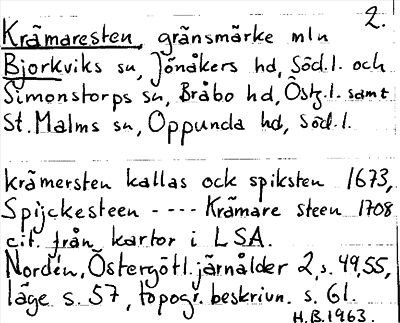 2.
Krämaresten, gränsmärke mln
Björkviks sn, Jönåkers hd, Söd.l. och
Simonstorps sn, Bråbo hd, Östg.l. samt
St. Malms sn, Oppunda hd, Söd.l.
krämersten kallas ock spiksten 1673,
Spijckesteen ---- Krämare steen 1708
cit. från kartor i LSA.
Nordén, Östergötl. järnålder 2, s. 49,55,
läge s. 57, topogr. beskrivn. s. 61.
H.B. 1963.